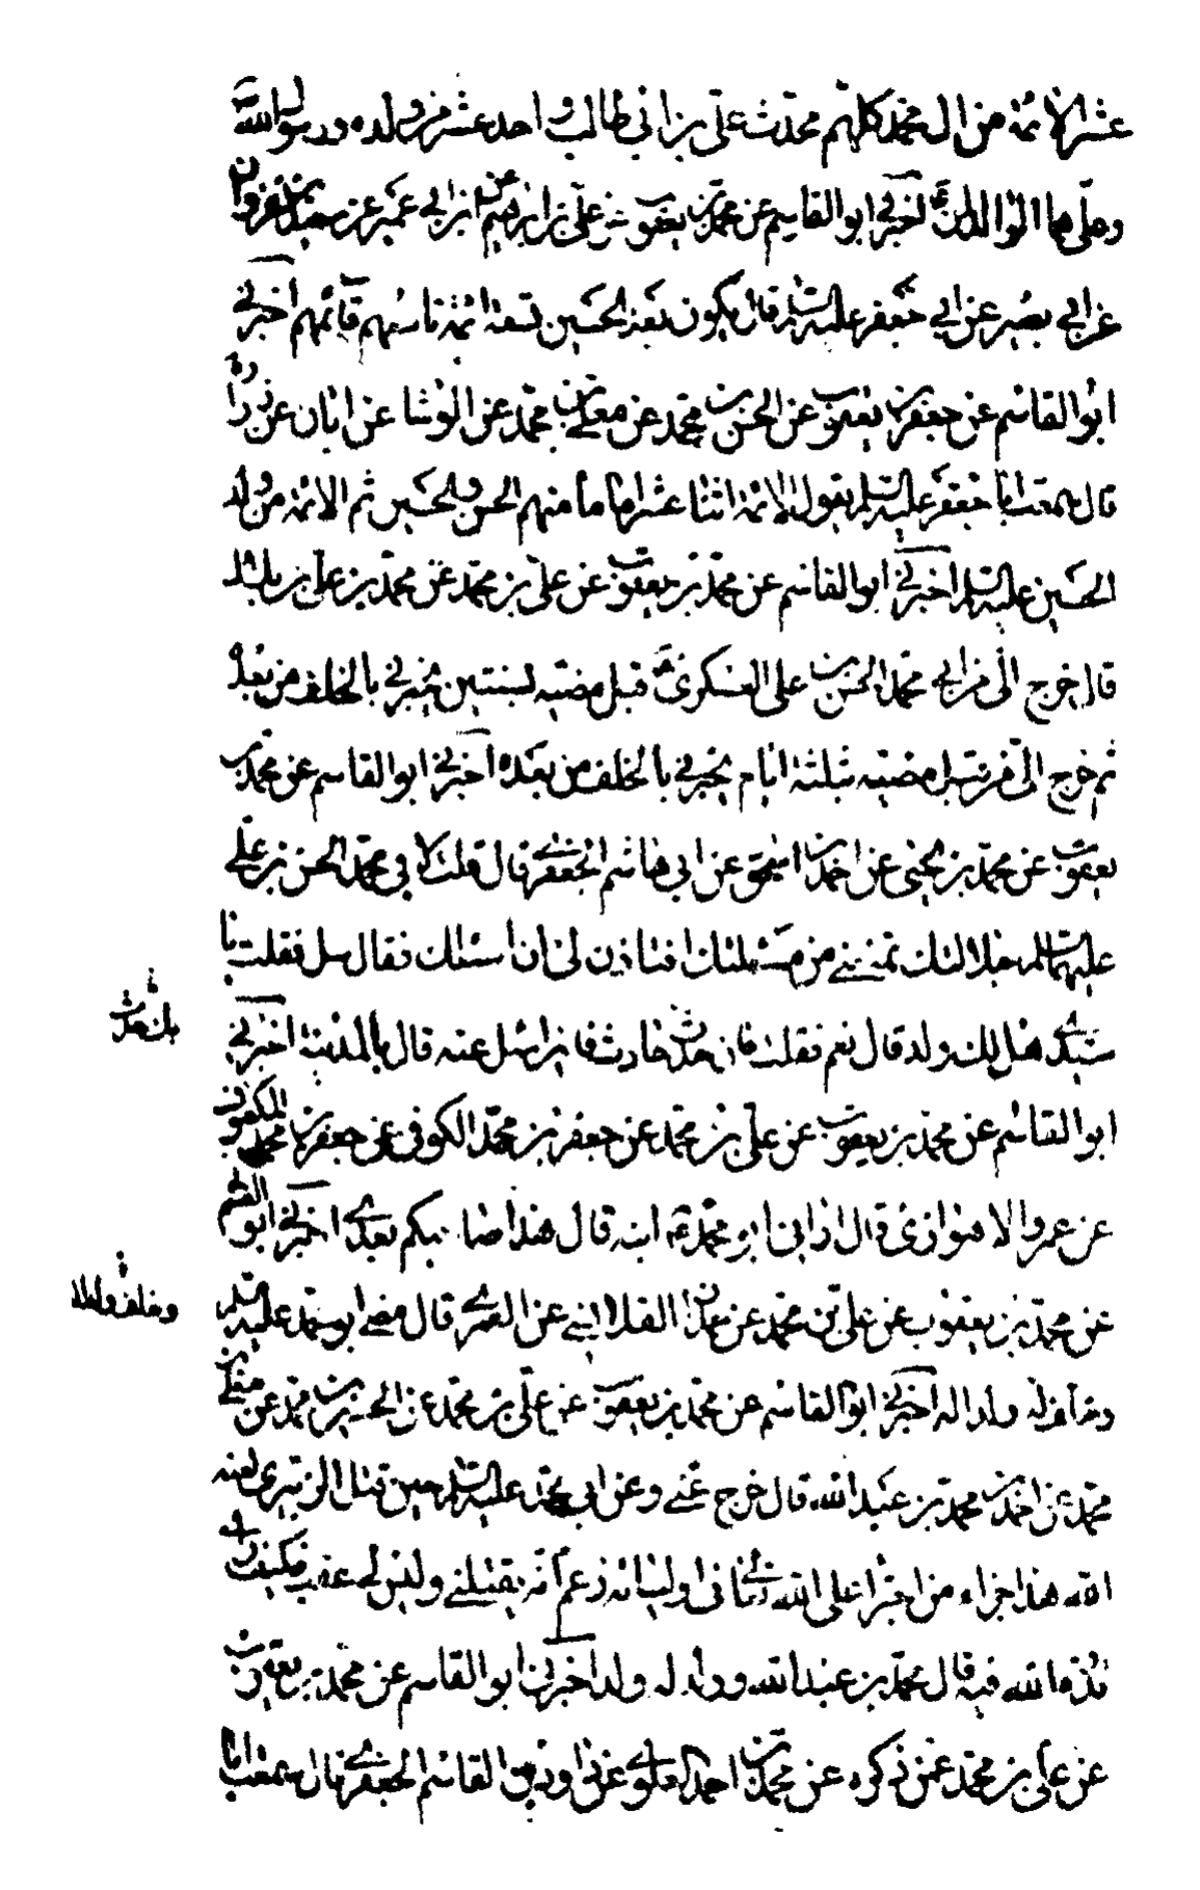 عشر الائمة من ال محمد كلهم محدث علي بن ابي طالب واحد عشر من ولده ورسول الله
وعلي هما الوالدان اخبرني ابو القاسم عن محمد بن يعقوب عن علي بن ابراهيم عن ابن ابي عمير عن سعيد بن غزوان
عن ابي بصير عن ابي جعفر عليه السلام قال يكون بعد الحسين تسعة ائمة تاسعهم قائمهم اخبرني
ابو القاسم عن جعفر بن يعقوب عن الحسن بن محمد عن معلى بن محمد عن الوشا عن ابان عن زرارة
قال سمعت ابا جعفر عليه السلم يقول الائمة اثنا عشر اماما منهم الحسن والحسين ثم الائمة من ولد
الحسين عليه السلم اخبرني ابو القاسم عن محمد بن يعقوب عن علي بن محمد عن محمد بن علي بن بلال
قال خرج الي من ابي محمد الحسن بن علي العسكري قبل مضيه بسنتين يخبرني بالخلف من بعده
ثم خرج الي من قبل مضيه بثلثة ايام يخبرني بالخلف من بعده اخبرني ابو القاسم عن محمد بن
يعقوب عن محمد بن يحيى عن احمد بن اسحق عن ابي هاشم الجعفري قال قلت لابي محمد الحسن بن علي
عليهما السلم جلالتك تمنعني من مسئلتك افتاذن لي ان اسئلك فقال سل فقلت يا
سيدي هل لك ولد قال نعم فقلت فان حدث حادث فاين اسئل عنه قال بالمدينة اخبرني
بك حدث
ابو القاسم عن محمد بن يعقوب عن علي بن محمد عن جعفر بن محمد الكوفي عن جعفر بن محمد المكفوف
عن عمرو الاهوازي قال اراني ابو محمد ابنه قال هذا صاحبكم بعدي اخبرني ابو القسم
عن محمد بن يعقوب عن علي بن محمد عن حمدان القلانسي عن العمري قال مضى ابو محمد عليه السلم
وخلف ولدا
وخلف ولدا له اخبرني ابو القاسم عن محمد بن يعقوب عن علي بن محمد عن الحسين بن محمد عن معلى بن
محمد عن احمد بن محمد بن عبد الله قال خرج عن ابي محمد عليه السلم حين قتل الزبيري لعنه
الله هذا جزاء من اجترا على الله تعالى في اوليائه زعم انه يقتلني وليس لي عقب فكيف راى
قدرة الله فيه قال محمد بن عبد الله وولد له ولد اخبرني ابو القاسم عن محمد بن يعقوب
عن علي بن محمد عمن ذكره عن محمد بن احمد العلوي عن داود بن القاسم الجعفري قال سمعت ابا